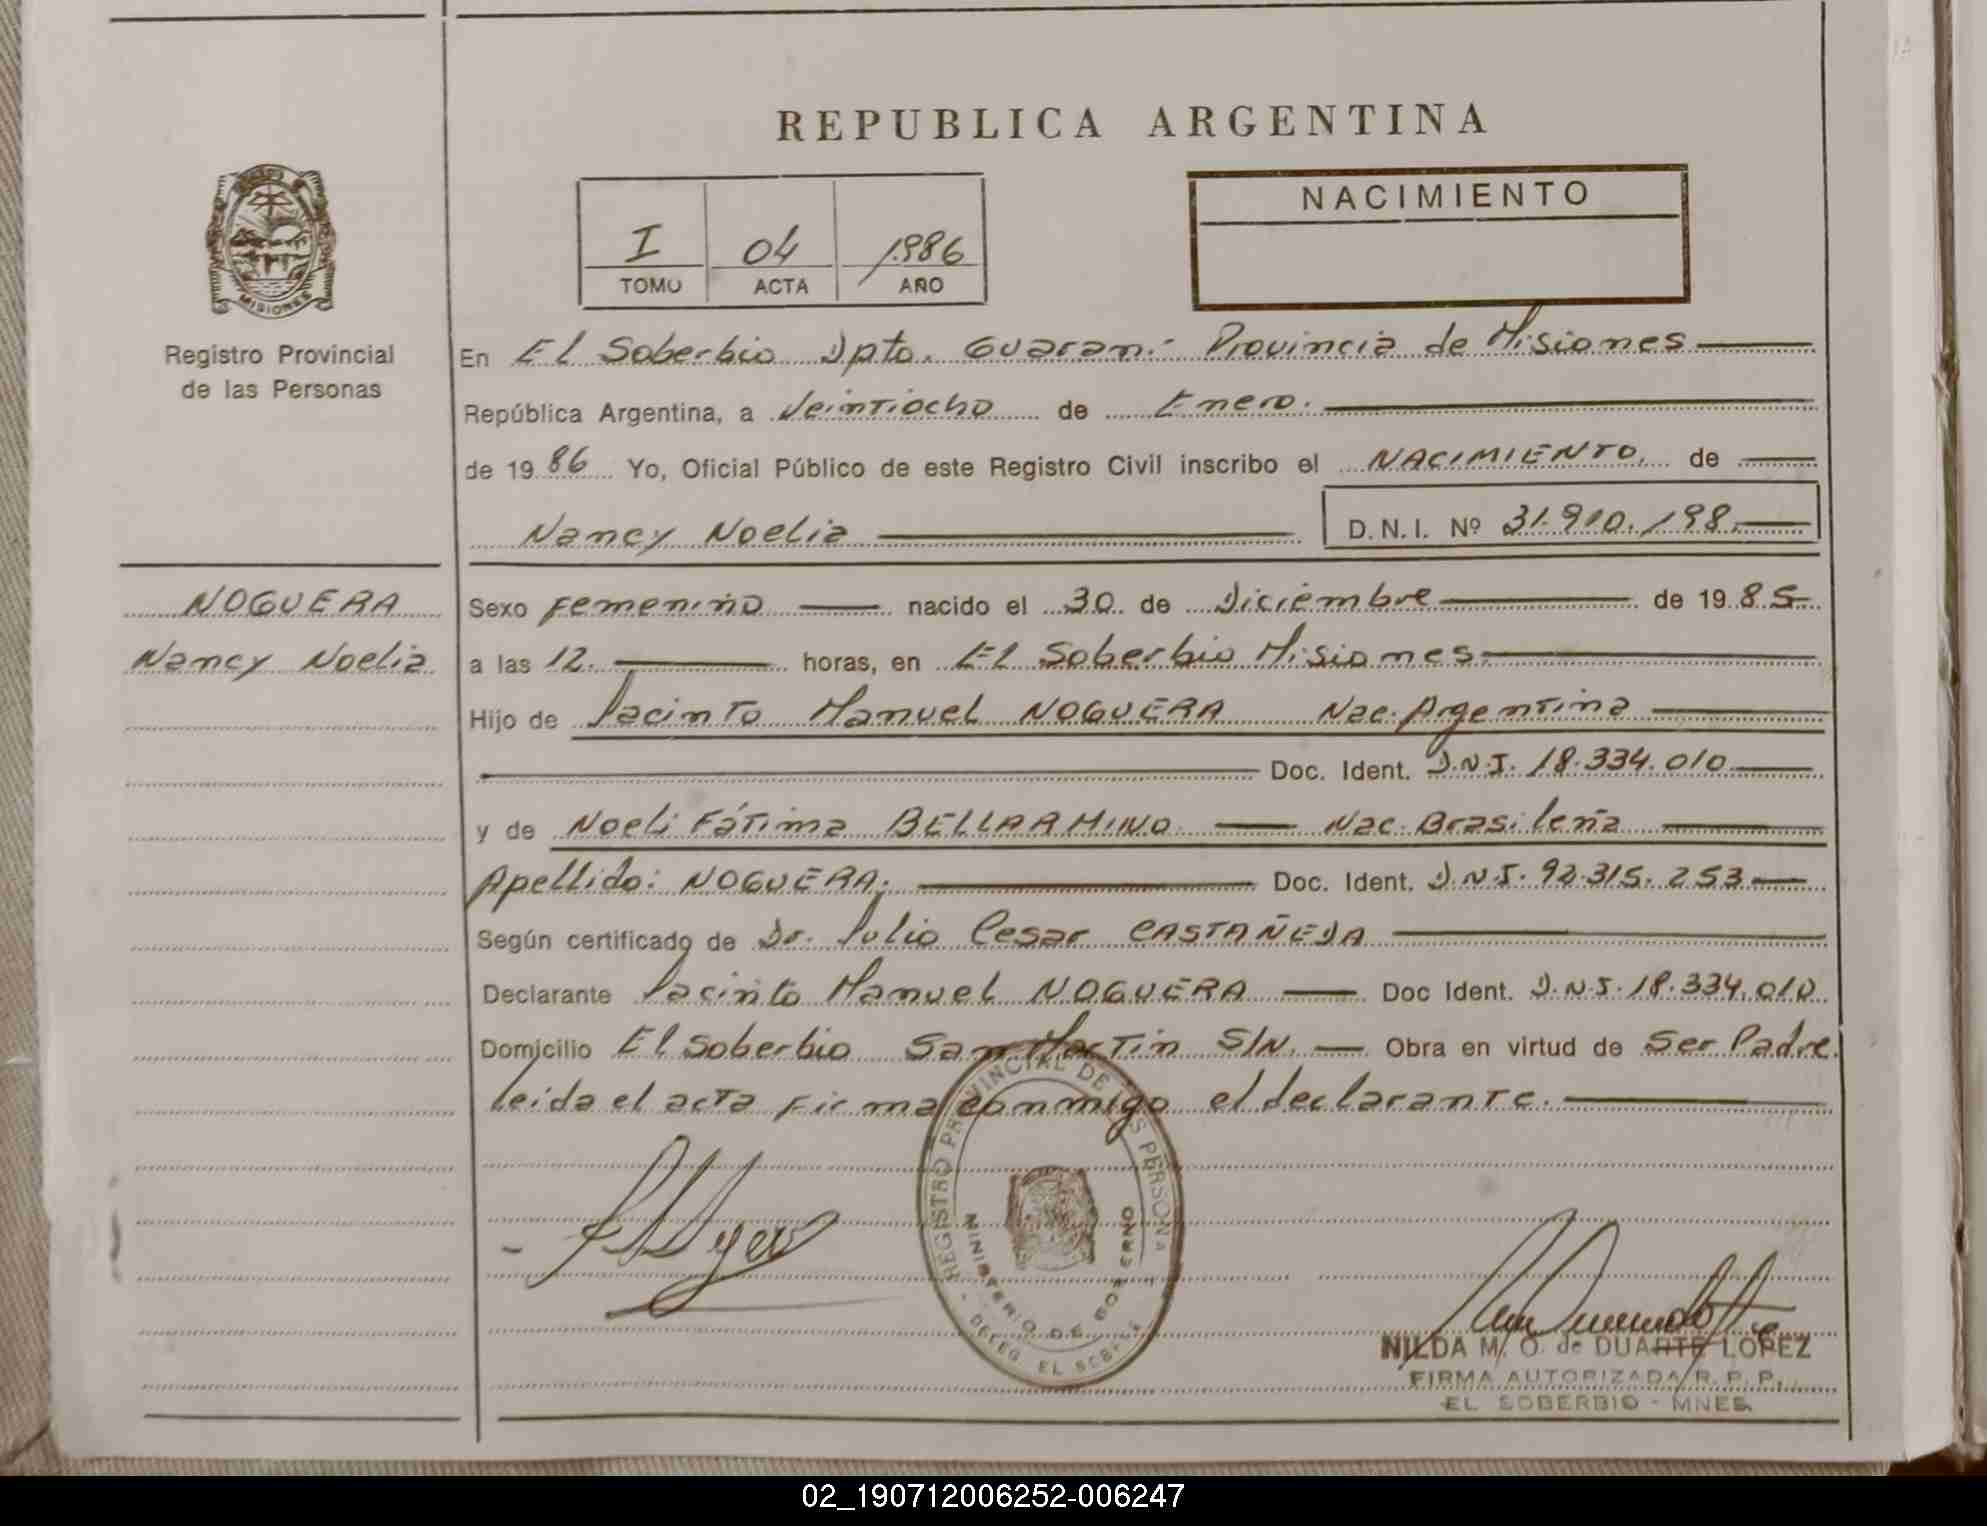 REPUBLICA ARGENTINA
NACIMIENTO
I 04 1986
TOMO ACTA AÑO
MISIONES
Registro Provincial
de las Personas
En El Soberbio Dpto. Guaraní Provincia de Misiones
República Argentina, a Veintiocho de Enero.
de 19 86 Yo, Oficial Público de este Registro Civil inscribo el NACIMIENTO. de
Nancy Noelia D.N.I. Nº 31.910.198.
NOGUERA
Nancy Noelia
Sexo Femenino nacido el 30 de Diciembre de 19 85
a las 12. horas, en El Soberbio Misiones
Hijo de Jacinto Manuel NOGUERA Nac. Argentina
Doc. Ident. D.N.I. 18.334.010
y de Noeli Fátima BELLARMINO Nac. Brasileña
Apellido: NOGUERA. Doc. Ident. D.N.I. 92.315.253
Según certificado de Dr. Julio Cesar CASTAÑEDA
Declarante Jacinto Manuel NOGUERA Doc Ident. D.N.I. 18.334.010
Domicilio El Soberbio San Martin S/N. Obra en virtud de Ser Padre.
leida el acta Firma conmigo el declarante.
REGISTRO PROVINCIAL DE LAS PERSONAS
MINISTERIO DE GOBIERNO
DELEG. EL SOBERBIO
NILDA M. O. de DUARTE LOPEZ
FIRMA AUTORIZADA R. P. P.
EL SOBERBIO - MNES.
02_190712006252-006247